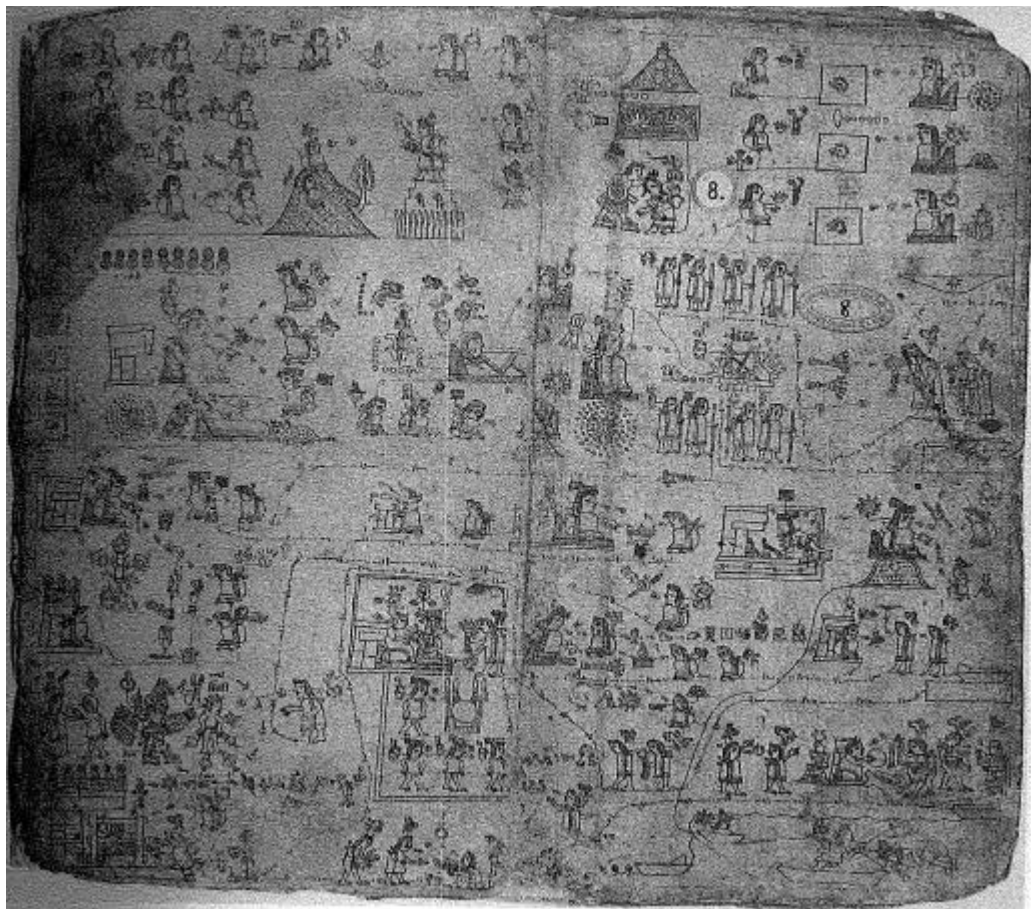 8.
8